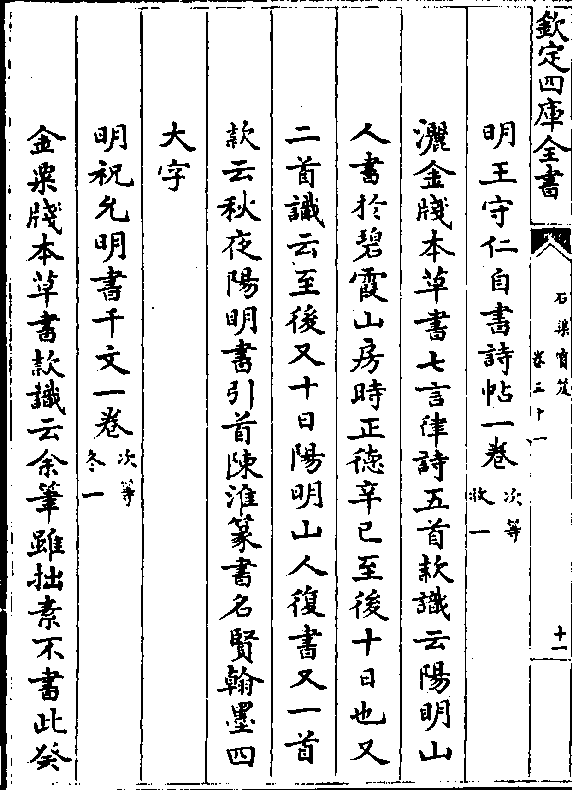 欽定四庫全書
石渠寶笈
卷三十一
十一
明王守仁自書詩帖一卷 次等 收一
灑金牋本草書七言律詩五首款識云陽明山
人書於碧霞山房時正德辛巳至後十日也又
二首識云至後又十日陽明山人復書又一首
款云秋夜陽明書引首陳淮篆書名賢翰墨四
大字
明祝允明書千文一卷 次等 冬一
金粟牋本草書款識云余筆雖拙素不書此癸